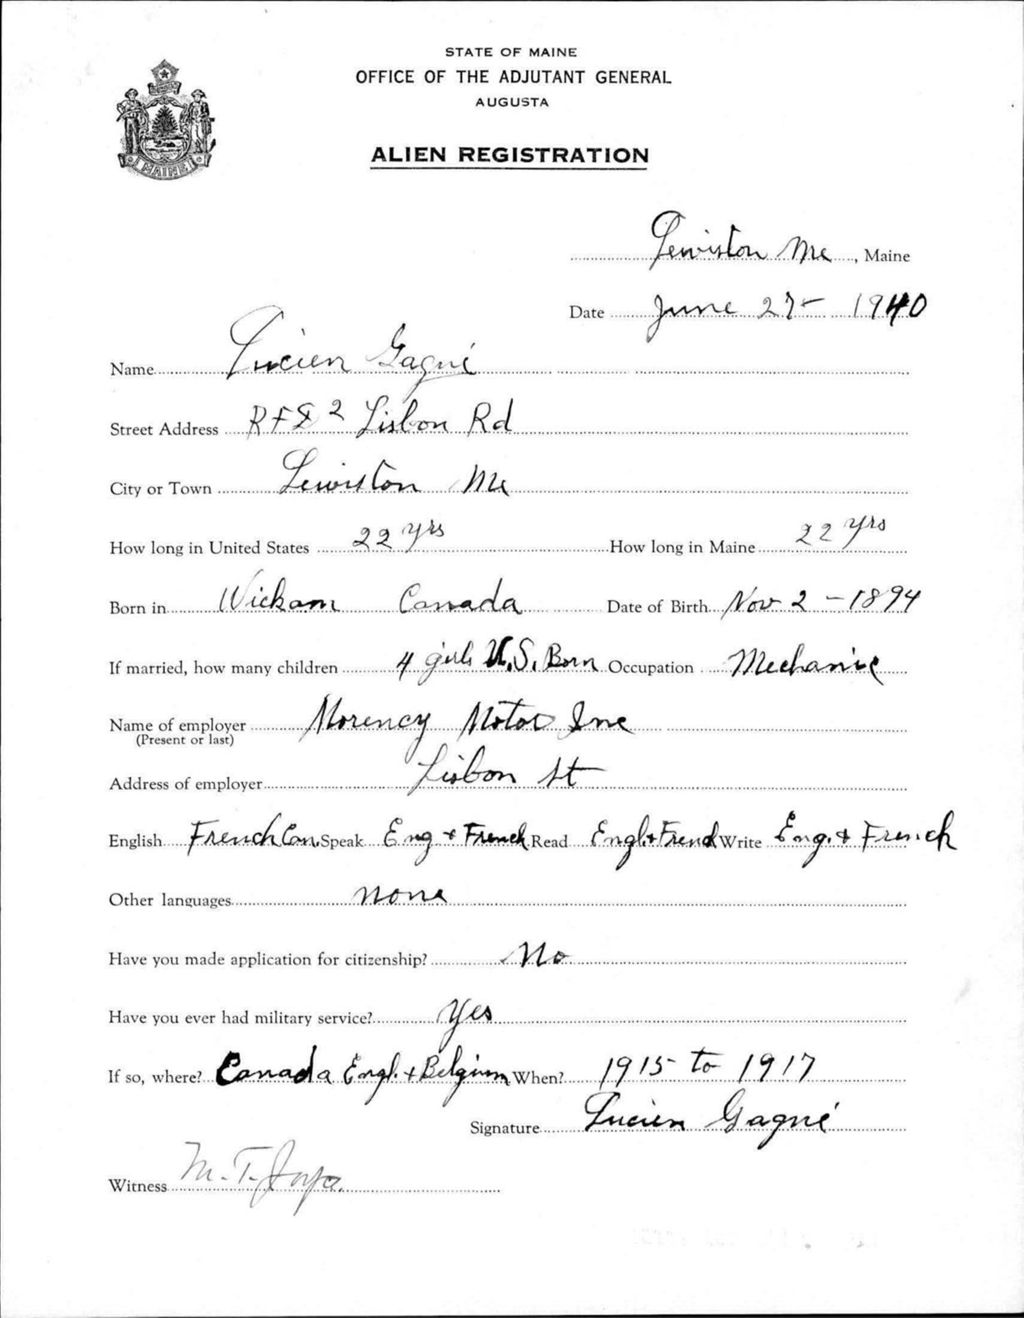 STATE OF MAINE
OFFICE OF THE ADJUTANT GENERAL
AUGUSTA
ALIEN REGISTRATION
MAINE
Lewiston Me, Maine
Date June 27 - 1940
Name Lucien Gagné
Street Address RFD 2 Lisbon Rd
City or Town Lewiston Me
How long in United States 22 yrs How long in Maine 22 yrs
Born in Wickam Canada Date of Birth Nov 2 - 1894
If married, how many children 4 girls U.S. Born Occupation Mechanic
Name of employer Morency Motor Inc
(Present or last)
Address of employer Lisbon St
English French Can. Speak Eng + French Read Engl + French Write Eng. + French
Other languages none
Have you made application for citizenship? No
Have you ever had military service? Yes
If so, where? Canada Engl. + Belgium When? 1915 to 1917
Signature Lucien Gagné
Witness M. T.